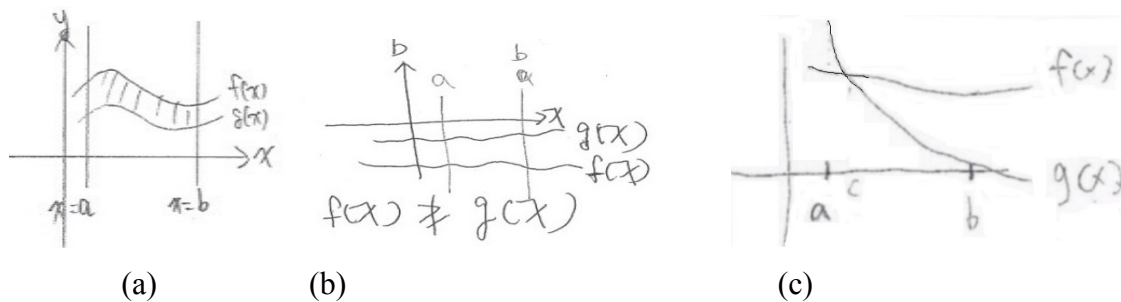 y
f(x)
g(x)
x
x=a
x=b
(a)
b
a
b
a
x
g(x)
f(x)
f(x) ≱ g(x)
(b)
f(x)
g(x)
a
c
b
(c)